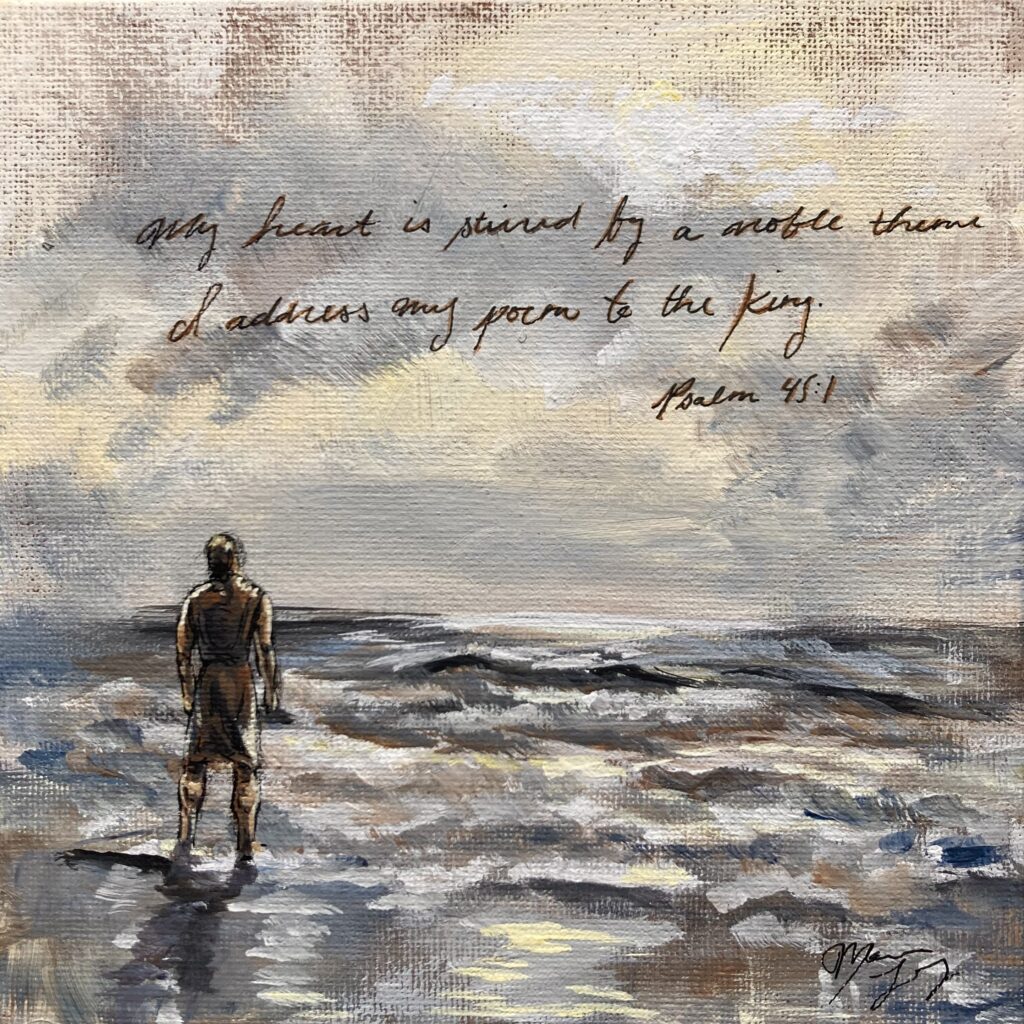 My heart is stirred by a noble theme
I address my poem to the King.
Psalm 45:1